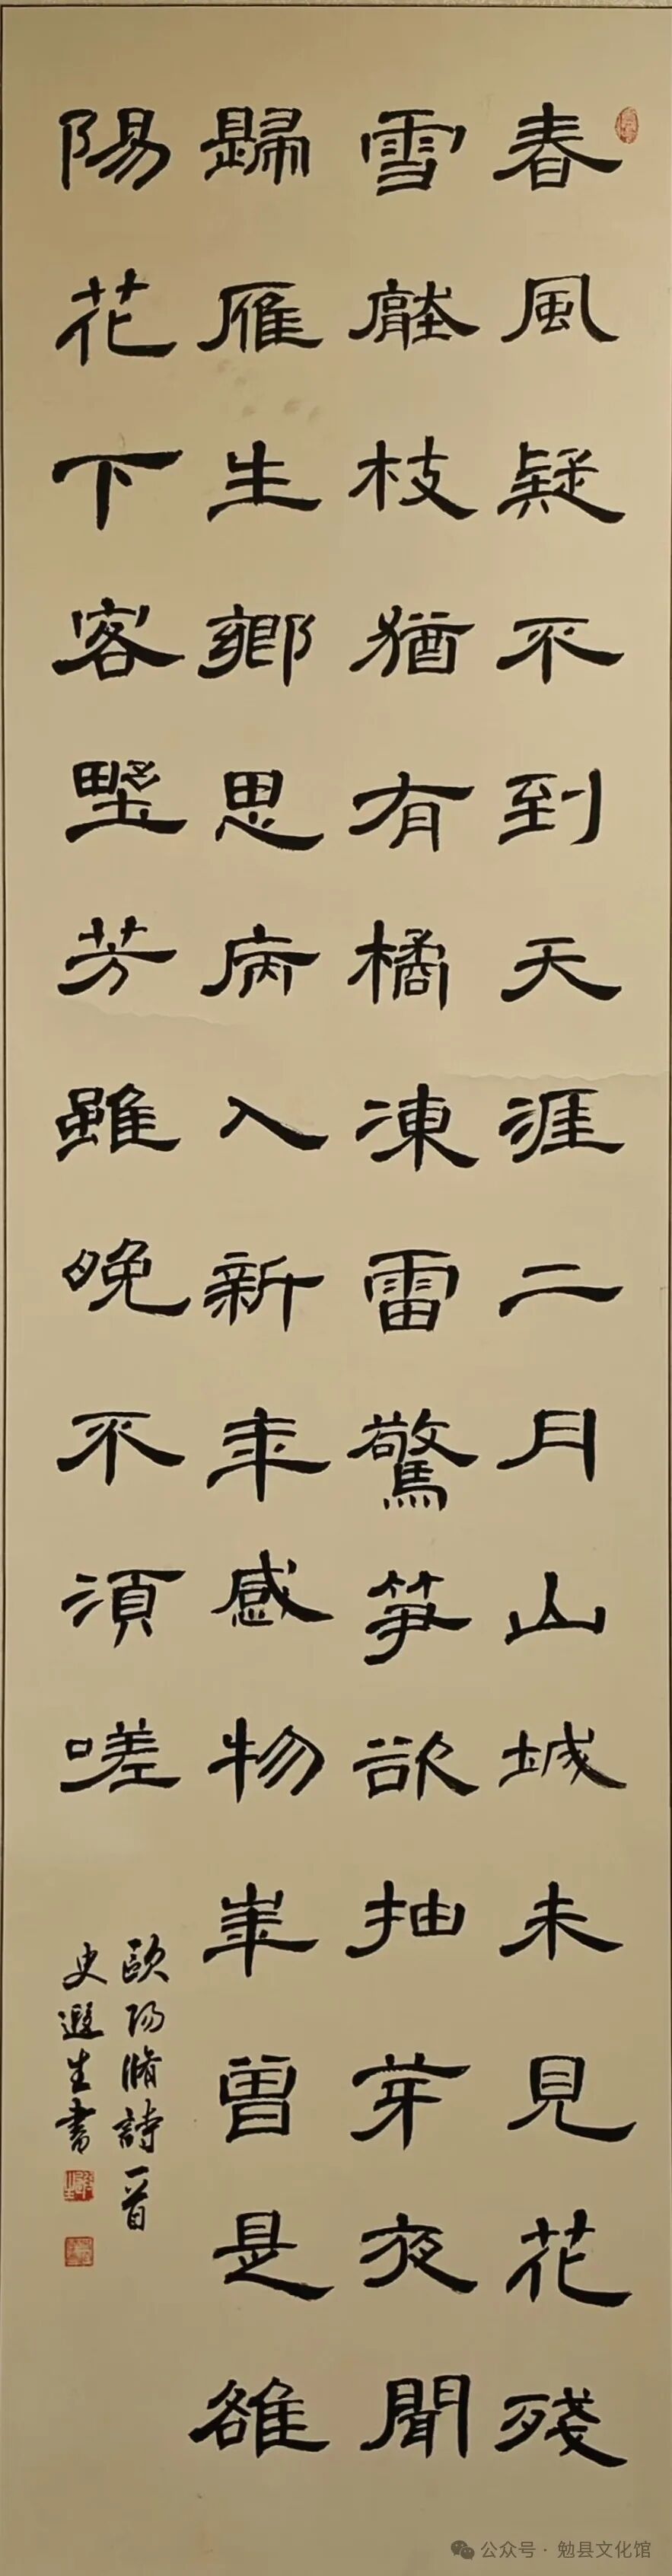 春風疑不到天涯二月山城未見花殘
雪壓枝猶有橘凍雷驚笋欲抽芽夜聞
歸雁生鄉思病入新年感物華曾是雒
陽花下客墅芳雖晚不須嗟
歐陽脩詩一首
史遐生書
公众号·勉县文化馆